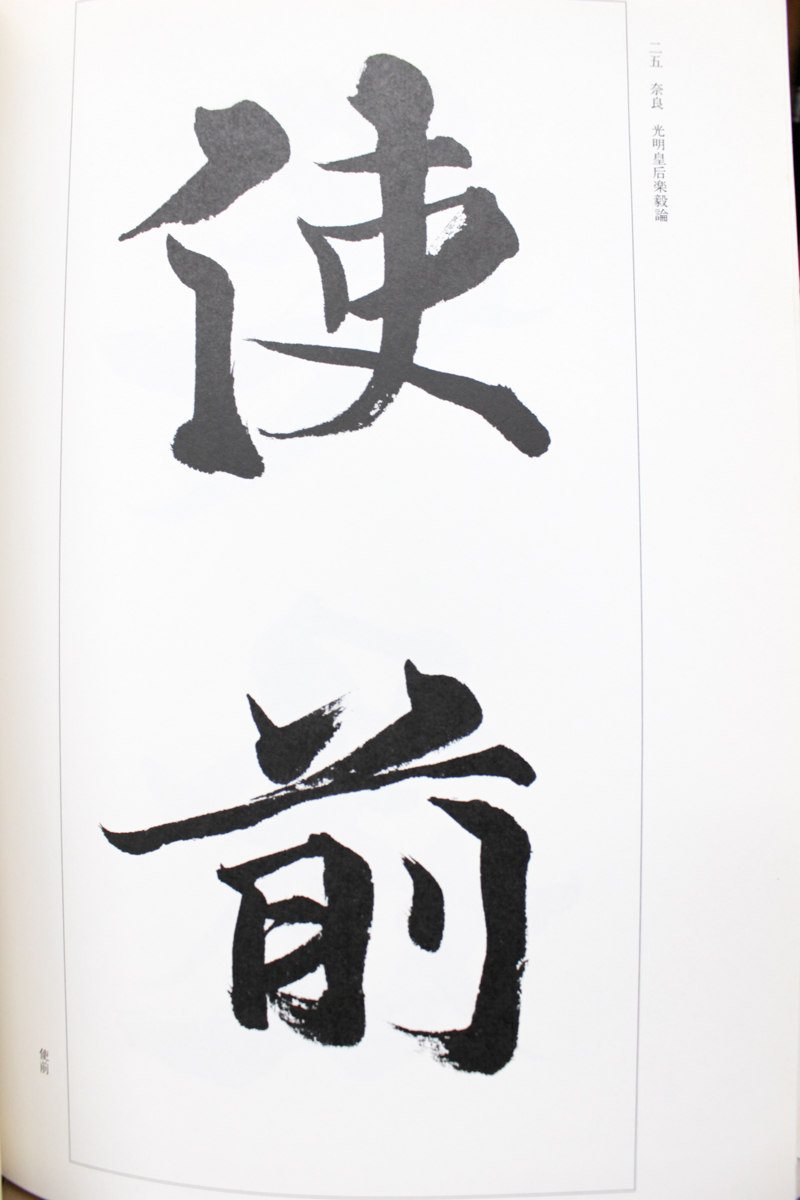 二五 奈良 光明皇后楽毅論
使前
使前